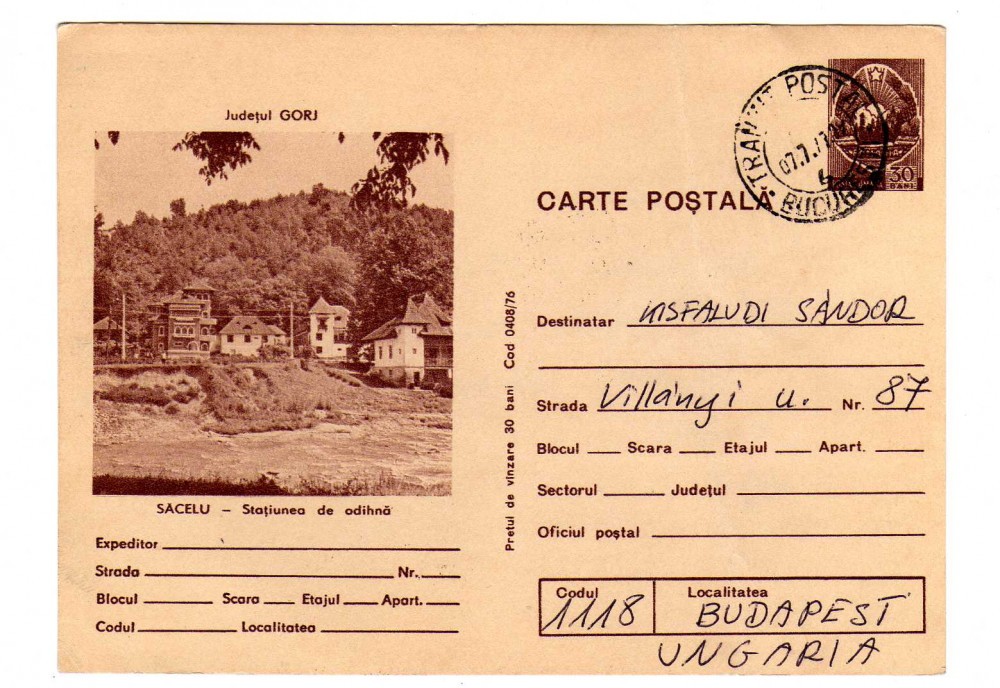 Județul GORJ
SĂCELU – Stațiunea de odihnă
Expeditor
Strada Nr.
Blocul Scara Etajul Apart.
Codul Localitatea
Prețul de vînzare 30 bani Cod 0408/76
POSTA
BUCUR
30
BANI
CARTE POȘTALĂ
Destinatar KISFALUDI SÁNDOR
Strada Villányi u. Nr. 87
Blocul Scara Etajul Apart.
Sectorul Județul
Oficiul poștal
Codul Localitatea
1118 BUDAPEST
UNGARIA